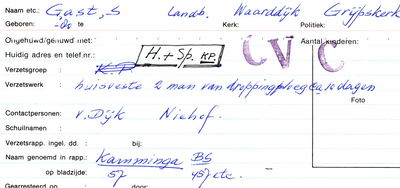 Naam etc.: Gast, S Landb. Waarddijk Grijpskerk
Geboren: te Kerk: Politiek:
Ongehuwd/gehuwd met: Aantal kinderen:
Huidig adres en telef.nr.: H. + Sp. KP. CVC
Verzetsgroep : K.P.
Verzetswerk : huisveste 2 man van droppingploeg ca 10 dagen
Foto
Contactpersonen: v. Dijk Niehof.
Schuilnamen :
Verzetsrapp. ingel. dd. : bij:
Naam genoemd in rapp.: Kamminga BS
op bladzijde: 57 457 etc.
Gearresteerd op : door: